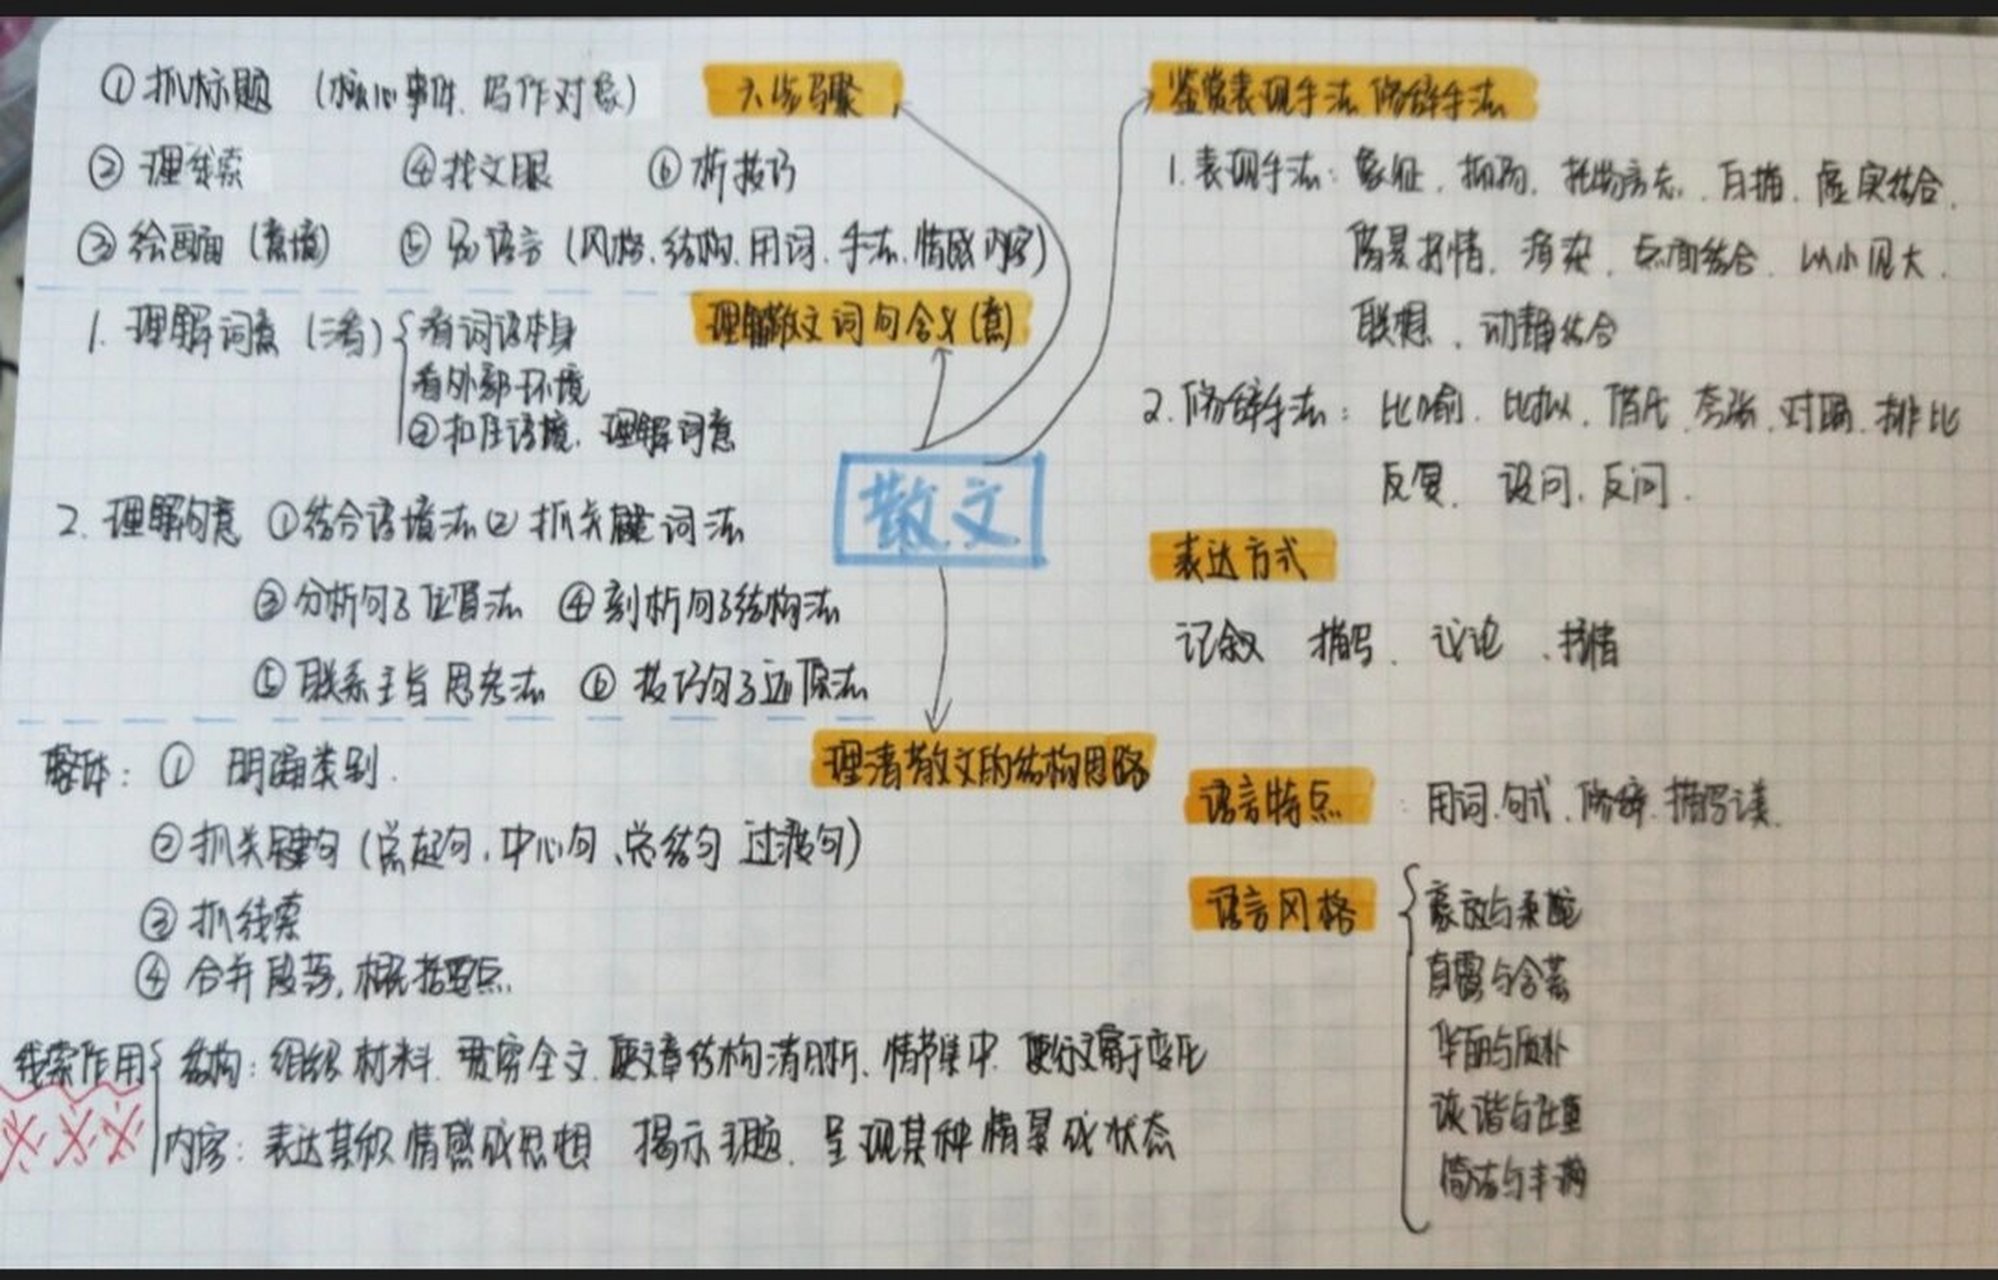 ①抓标题（核心事件、写作对象）
六步骤
②理线索 ④找文眼 ⑥析技巧
③绘画面（意境） ⑤品语言（风格、结构、用词、手法、情感内容）
理解散文词句含义（意）
1. 理解词意（三看）
看词语本身
看外部环境
②扣住语境、理解词意
2. 理解句意 ①结合语境法 ②抓关键词法
③分析句子位置法 ④剖析句子结构法
⑤联系主旨思考法 ⑥技巧句子还原法
散文
理清散文的结构思路
整体：① 明确类别.
②抓关键句（总起句、中心句、总结句 过渡句）
③抓线索
④合并段落，概括要点.
线索作用
结构：组织材料、贯穿全文、使文章结构清晰、情节集中、使行文富于变化
内容：表达某种情感或思想 揭示主题、呈现某种情景或状态
鉴赏表现手法 修辞手法
1. 表现手法：象征、抑扬、托物言志、白描、虚实结合、
借景抒情、渲染、点面结合、以小见大、
联想、动静结合
2. 修辞手法：比喻、比拟、借代、夸张、对偶、排比
反复、设问、反问.
表达方式
记叙 描写、议论、抒情
语言特点：用词、句式、修辞、描写
语言风格
豪放与柔婉
直露与含蓄
华丽与质朴
诙谐与庄重
简洁与丰满